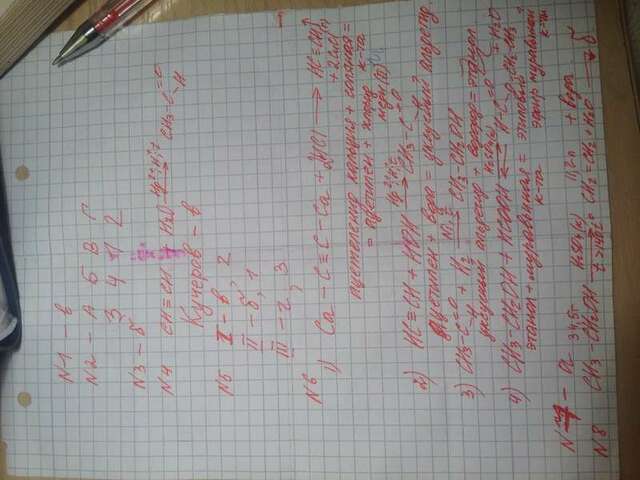 N1 - в
N2 - А Б В Г
3 4 1 2
N3 - б
N4 CH≡CH + H2O Hg2+, H+, t → CH3-C=O
H
Кучеров - в
N5 I - в, 2
II - б, 1
III - г, 3
N6
1) Ca - C ≡ C - Ca + 2HCl → HC≡CH↑
+ 2CuCl
ацетеленид кальция + соляная =
к-та
= ацетилен + хлорид
меди (II)
2) HC≡CH + HOH Hg2+, H+, t → CH3-C=O
H
ацетилен + вода = уксусный альдегид.
3) CH3-C=O + H2 Ni, t → CH3-CH2OH
H
уксусный альдегид + водород = этанол
4) CH3-CH2OH + HCOOH H2SO4(к) H-C=O + H2O
O-CH2-CH3
этанол + муравьиная = этиловый
к-та эфир муравьиной
к-ты
N7 - а
34,5г 11,2л + вода
N8 CH3-CH2OH H2SO4(к) t>140C° CH2=CH2 + H2O → б